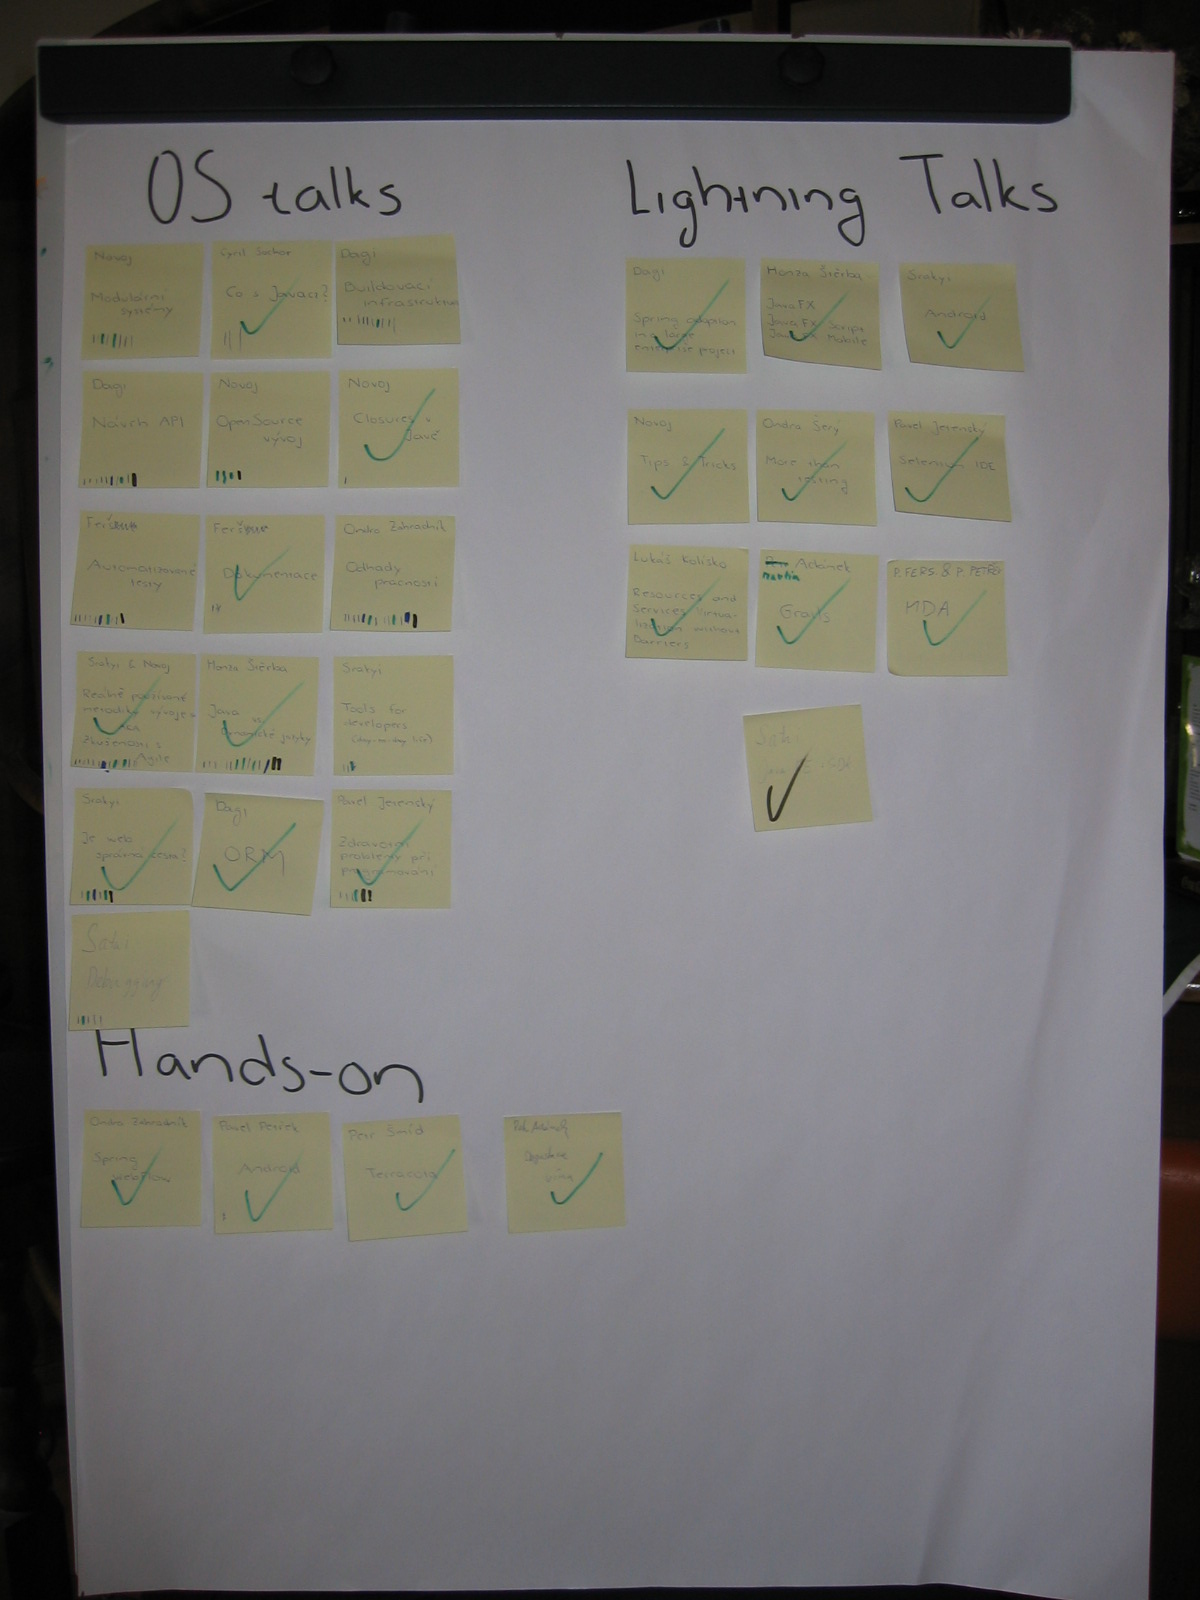 OS talks
Novoj
Modulární
systémy
Cyril Sochor
Co s Javou?
Dagi
Buildovací
infrastruktura
Dagi
Návrh API
Novoj
OpenSource
vývoj
Novoj
Closures v
Javě
Automatizované
testy
Dokumentace
Ondro Zahradník
Odhady
pracnosti
Srakyi & Novoj
Reálně používané
metodiky vývoje
Zkušenosti s
Agile
Honza Štěrba
Java vs
dynamické jazyky
Srakyi
Tools for
developers
(day-to-day life)
Srakyi
Je web
správná cesta?
Dagi
ORM
Pavel Jesenský
Zdravotní
problémy při
programování
Debugging
Lightning Talks
Dagi
Spring adoption
in a large
enterprise project
Honza Štěrba
JavaFX
JavaFX Script
JavaFX Mobile
Srakyi
Android
Novoj
Tips & Tricks
Ondra Šerý
More than
testing
Pavel Jesenský
Selenium IDE
Lukáš Kolísko
Resources and
services Virtua-
lization without
Barriers
Martin Adámek
Grails
P. FERS. & P. PETŘEK
MDA
Hands-on
Ondro Zahradník
Spring
webflow
Pavel Petřek
Android
Petr Šmíd
Terracota